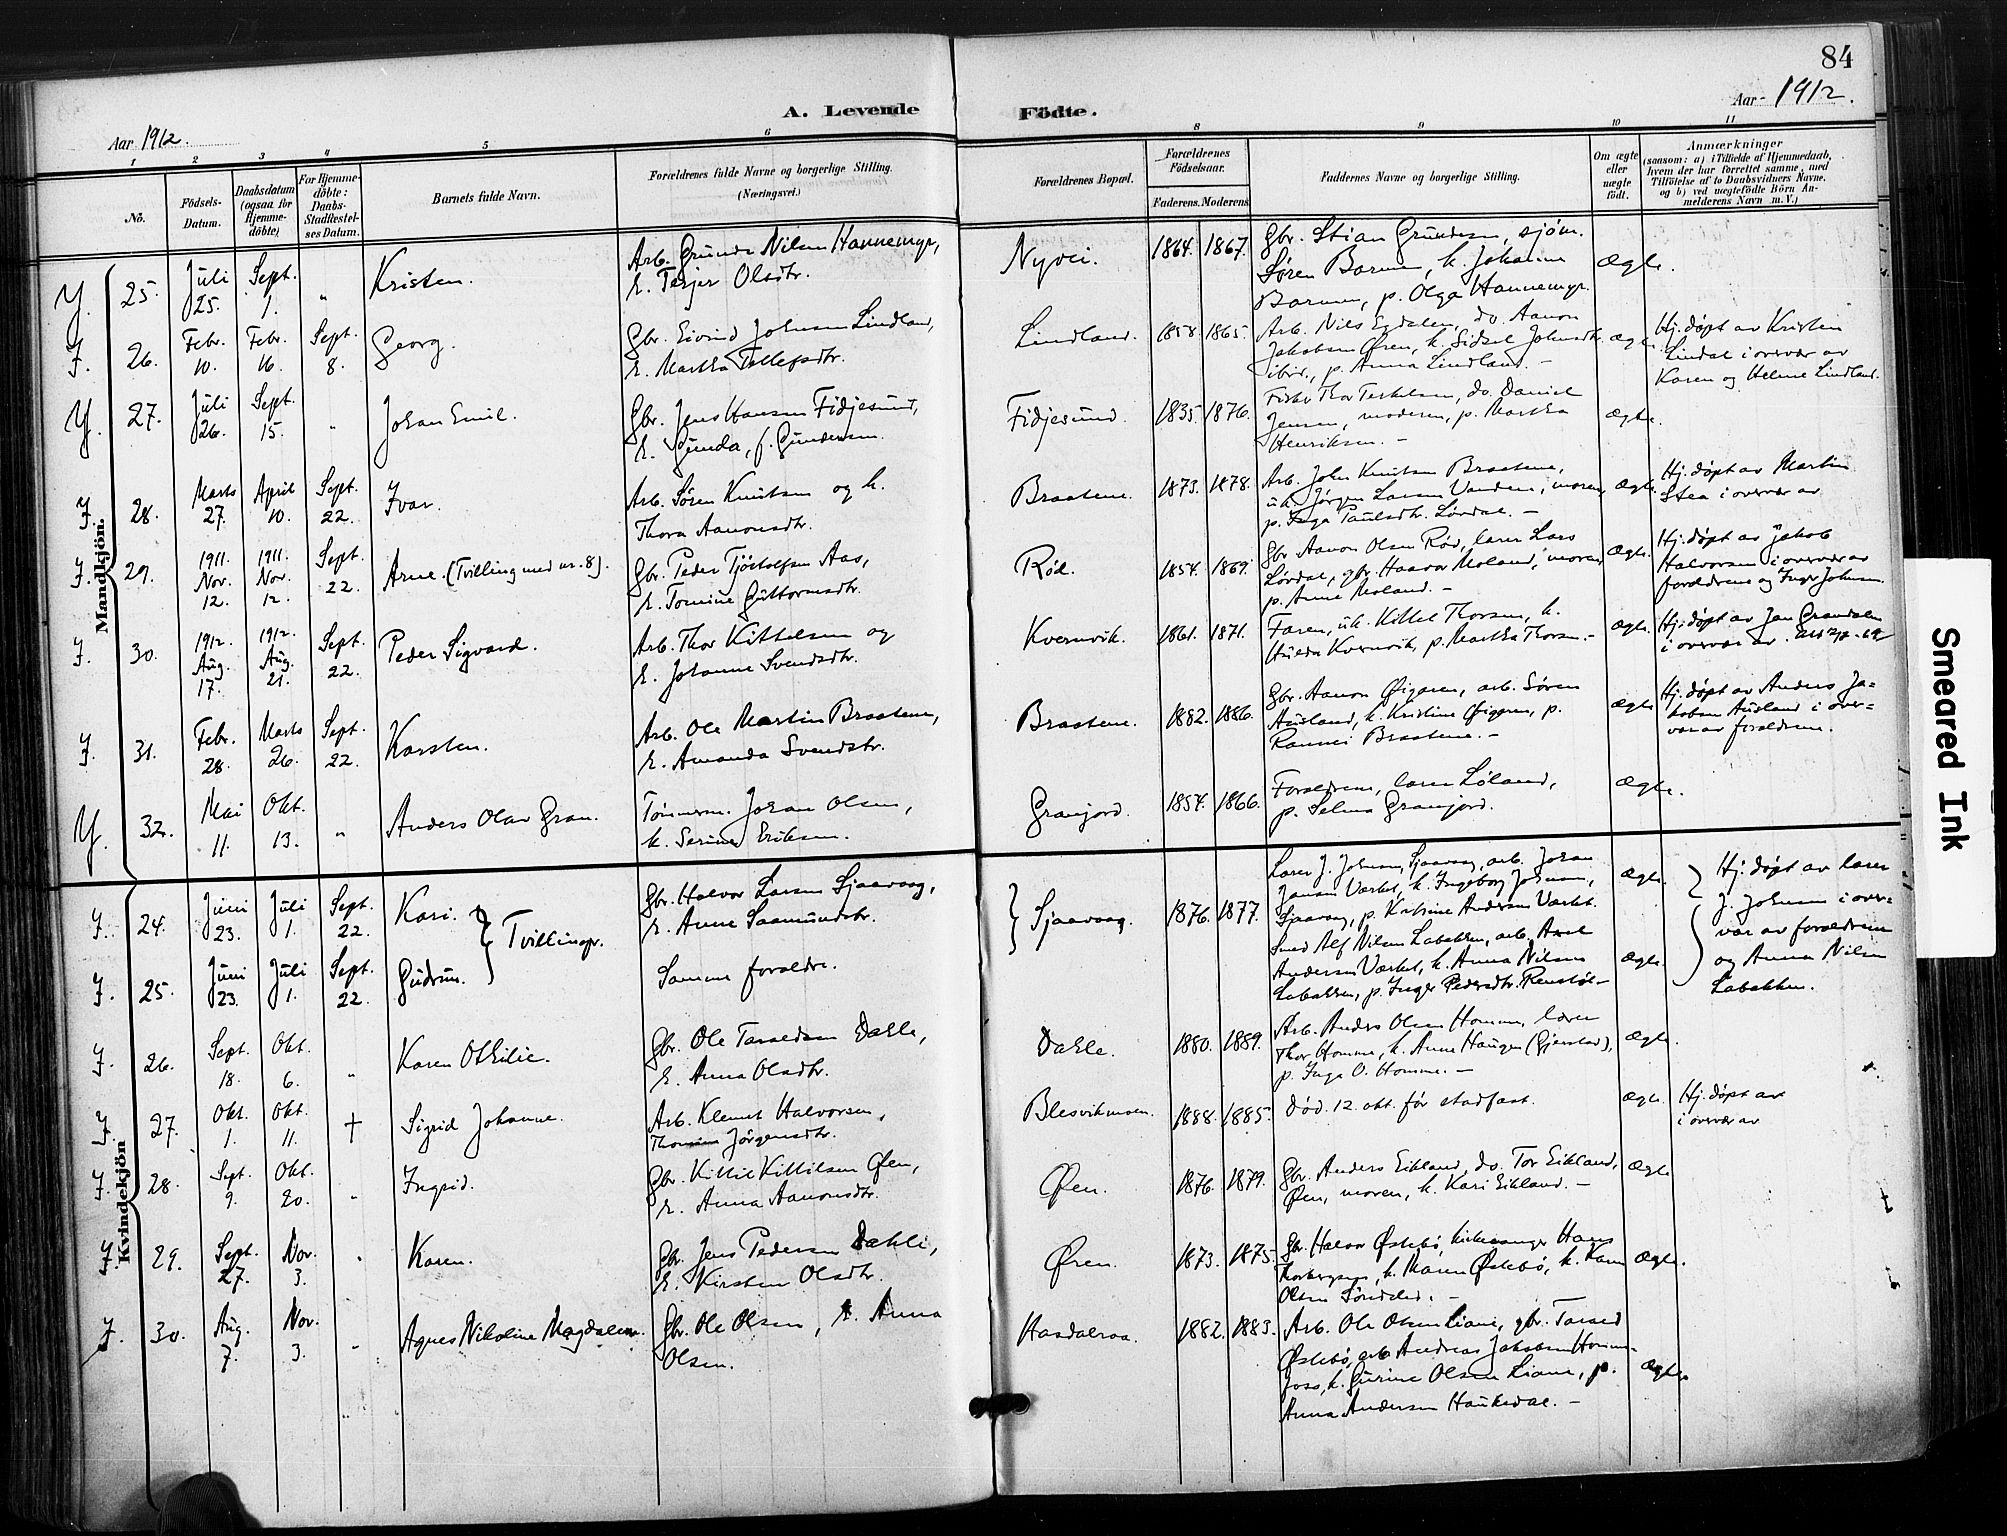 84
Aar 1912.
A. Levende Födte.
Aar 1912.
1 2 3 4 5 6 8 9 10 11
No.
Födsels-Datum.
Daabsdatum (ogsaa for Hjemme-döbte)
For Hjemme-döbte: Daabs-Stadfæstel-ses Datum.
Barnets fulde Navn.
Forældrenes fulde Navne og borgerlige Stilling. (Næringsvei.)
Forældrenes Bopæl.
Forældrenes Födselsaar.
Faderens. Moderens.
Faddernes Navne og borgerlige Stilling.
Om ægte eller uægte födt.
Anmærkninger
(saasom: a) i Tilfælde af Hjemmedaab, hvem der har forrettet samme, med Tilföielse af to Daabsvidners Navne, og b) ved uægtefödte Börn Anmelderens Navn m. V.)
Mandkjön.
Y. 25. Juli 25. Sept. 1. „ Kristen.
Arb. Gunder Nilsen Hannemyr,
E. Terjer Olsdtr.
Nyvei. 1864. 1867.
Gbr. Stian Gundersen, sjøm.
Søren Barmen, k. Johanne
Barmen, p. Olga Hannemyr.
ægte.
F. 26. Febr. 10. Febr. 16. Sept. 8. Georg.
Gbr. Eivind Johnsen Lindland,
E. Martha Tellefsdtr.
Lindland. 1858. 1865.
Arb. Nils Egdalen, do. Aanon
Jakobsen Øren, k. Sidsel Johnsdtr.
ibid., p. Anna Lindland. –
ægte.
Hj. døpt av Kristen
Lindal i overvær av
Karen og Helene Lindland.
Y. 27. Juli 26. Sept. 15. „ Johan Emil.
Gbr. Jens Hansen Fidjesund,
E. Gunda, f. Gundersen.
Fidjesund. 1835. 1876.
Fisker Thor Terkelsen, do. Daniel
Jensen, moderen, p. Martha
Henriksen. –
ægte.
F. 28. Marts 27. April 10. Sept. 22. Ivar.
Arb. Søren Knutsen og k.
Thora Aanonsdtr.
Braatene. 1873. 1878.
Arb. John Knutsen Braatene,
uk. Jørgen Larsen Vanden, moren,
p. Inga Paulsdtr. Lørdal. –
ægte.
Hj. døpt av Martin
Stea i overvær av
F. 29. 1911. Nov. 12. 1911. Nov. 12. Sept. 22. Arne. (Tvilling med nr. 8).
Gbr. Peder Tjøstolfsen Aas,
E. Tomine Guttormsdtr.
Rød. 1854. 1869.
Gbr. Aanon Olsen Rød, lærer Lars
Lørdal, gbr. Haavor Moland, moren,
p. Anne Moland. –
ægte.
Hj. døpt av Jakob
Halvorsen i overvær av
forældrene og Inger Johnsen.
F. 30. 1912. Aug. 17. 1912. Aug. 21. Sept. 22. Peder Sigvard.
Arb. Thor Kittelsen og
E. Johanne Svendsdtr.
Kvernvik. 1861. 1871.
Faren, uk. Kittel Thorsen, k.
Hulda Kvernvik, p. Martha Thorsen. –
ægte.
Hj. døpt av Jen Grandalen
i overvær av
F. 31. Febr. 28. Marts 26. Sept. 22. Karsten.
Arb. Ole Martin Braatene,
E. Amanda Svendsdtr.
Braatene. 1882. 1886.
Gbr. Aanon Øigaren, arb. Søren
Ausland, k. Kristine Øigaren, p.
Rannei Braatene. –
ægte.
Hj. døpt av Anders Ja=
kobsen Ausland i over=
vær av forældrene.
Y. 32. Mai 11. Okt. 13. „ Anders Olav Gran.
Tømmerm. Johan Olsen,
k. Serine Eriksen.
Granjord. 1854. 1866.
Forældrene, lærer Løland,
p. Selma Granjord.
ægte.
Kvindekjön
F. 24. Juni 23. Juli 1. Sept. 22. Kari. } Tvillinger.
Gbr. Halvor Larsen Sjaavaag,
E. Anne Saamundsdtr.
Sjaavaag. 1876. 1877.
Lærer J. Johnsen, Sjaavaag, arb. Johan
Jansen Værket, k. Ingeborg Johnsen,
Sjaavaag, p. Katrine Andersen Værket.
ægte.
Hj. døpt av lærer
J. Johnsen i over=
vær av forældrene
og Anna Nilsen
Labakken.
F. 25. Juni 23. Juli 1. Sept. 22. Gudrun.
Samme forældre.
Smed Alf Nilsen Labakken, arb. Axel
Andersen Værket, k. Anna Nilsen
Labakken, p. Inger Pedersdtr.
ægte.
F. 26. Sept. 18. Okt. 6. „ Karen Othilie.
Gbr. Ole Tarjedsen Dahle,
E. Anna Olsdtr.
Dahle. 1880. 1889.
Arb. Anders Olsen Homme, lærer
Thor Homme, k. Anne Haugen (Gjerstad),
p. Inga O. Homme. –
ægte.
F. 27. Okt. 1. Okt. 11. † Sigrid Johanne.
Arb. Klemet Halvorsen,
Thomine Jørgensdtr.
Blesvikmoen. 1888. 1885.
død 12 okt. før stadfæst.
ægte.
Hj. døpt av
i overvær av
F. 28. Sept. 9. Okt. 20. „ Ingrid.
Gbr. Kittil Kittilsen Øen,
E. Anna Aanonsdtr.
Øen. 1876. 1879.
Gbr. Anders Eikland, do. Tor Eikland,
Øen, moren, k. Kari Eikland. –
ægte
F. 29. Sept. 27. Nov. 3. „ Karen.
Gbr. Jens Pedersen Dahle,
E. Kirsten Olsdtr.
Øren. 1873. 1875.
Gbr. Halvor Østebø, kirkesanger Hans
Thorbergsen, k. Maren Østebø, k. Karen
Olsen Søndeled. –
ægte.
F. 30. Aug. 7. Nov. 3. „ Agnes Nikoline Magdalene.
Gbr. Ole Olsen, k. Anna
Olsen.
Haadalsaa. 1882. 1883.
Arb. Ole Olsen Liane, gbr. Tarjed
Østebø, arb. Andreas Jakobsen
k. Gurine Olsen Liane, p.
Anna Andersen Haukedal. –
ægte.
Smeared Ink